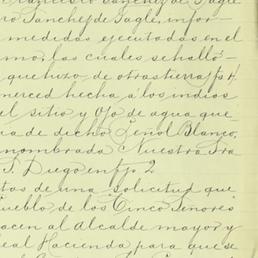 Francisco Sanchez de Tagle
ro Sanchez de Tagle, infor-
medidas ejecutadas en el
mo, las cuales se halló
que hizo de otras tierras p.r
merced hecha á los indios
el sitio y Ojo de agua que
ia de dicho Peñol Blanco,
nombrada Nuestra Sra
S. Diego en fjs 2
tos de una solicitud que
pueblo de los Cinco Señores
hacen al Alcalde mayor y
Real Hacienda para que se